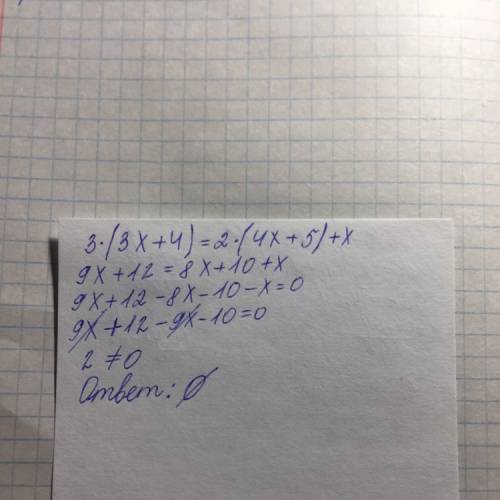 3·(3x+4)=2·(4x+5)+x
9x+12=8x+10+x
9x+12-8x-10-x=0
9x+12-9x-10=0
2≠0
Ответ: ∅